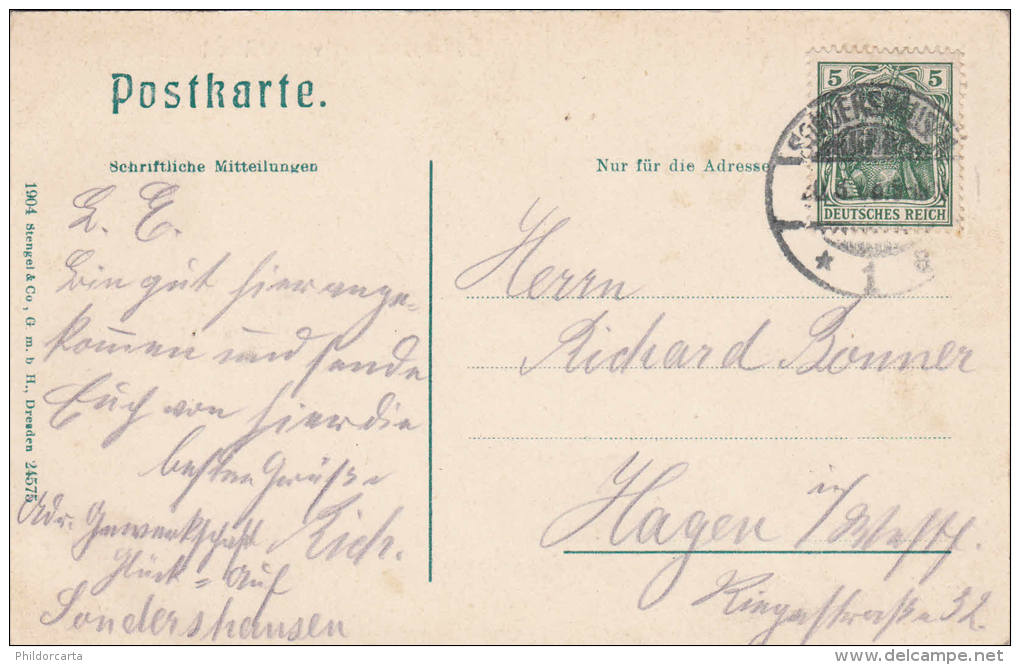 Postkarte.
Schriftliche Mitteilungen
Nur für die Adresse
5 5
DEUTSCHES REICH
SONDERSHAUSEN
* 1
1904 Stengel & Co., G. m. b H., Dresden 24575
L. E.
Bin gut hier ange-
kommen und sende
Euch von hier die
besten Grüße
Rich.
Adr. Gewerkschaft
Glück=Auf
Sondershausen
Herrn
Richard Bonner
Hagen i/Westf.
32
Phildorcarta
www.delcampe.net